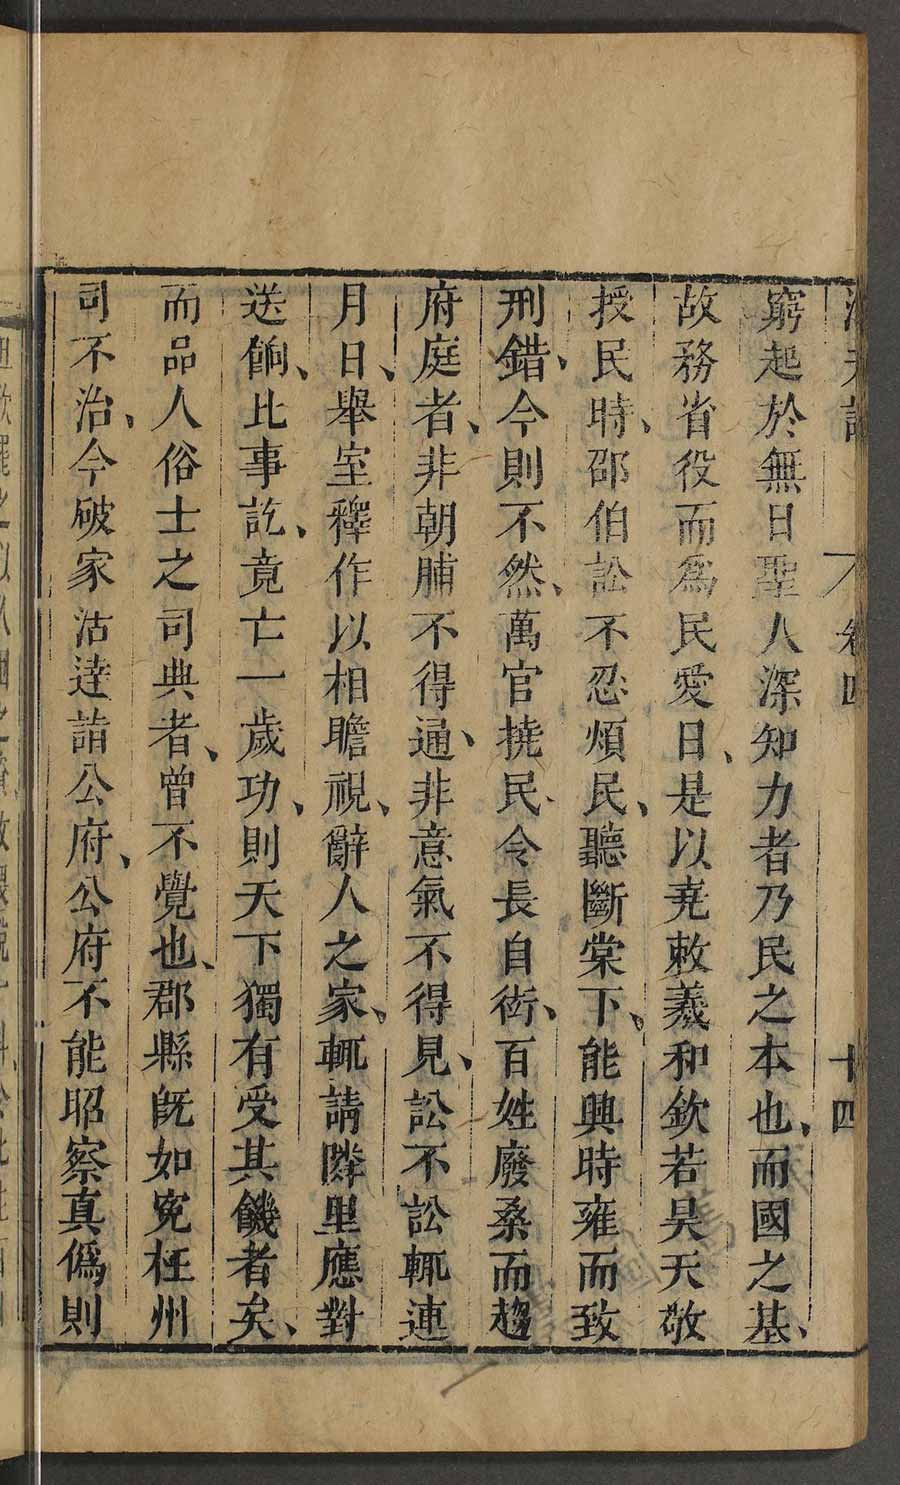 卷四 十四
窮起於無日聖人深知力者乃民之本也、而國之基、
故務省役而爲民愛日、是以堯敕羲和欽若昊天敬
授民時、邵伯訟不忍煩民、聽斷棠下、能興時雍而致
刑錯、今則不然、萬官撓民、令長自衒、百姓廢桑而趨
府庭者、非朝脯不得通、非意氣不得見、訟不訟輒連
月日、舉室釋作以相瞻視、辭人之家、輒請隣里應對
送餉、比事訖、竟亡一歲功、則天下獨有受其饑者矣、
而品人俗士之司典者、曾不覺也、郡縣旣如寃枉州
司不治、今破家活遠詣公府、公府不能昭察真僞則